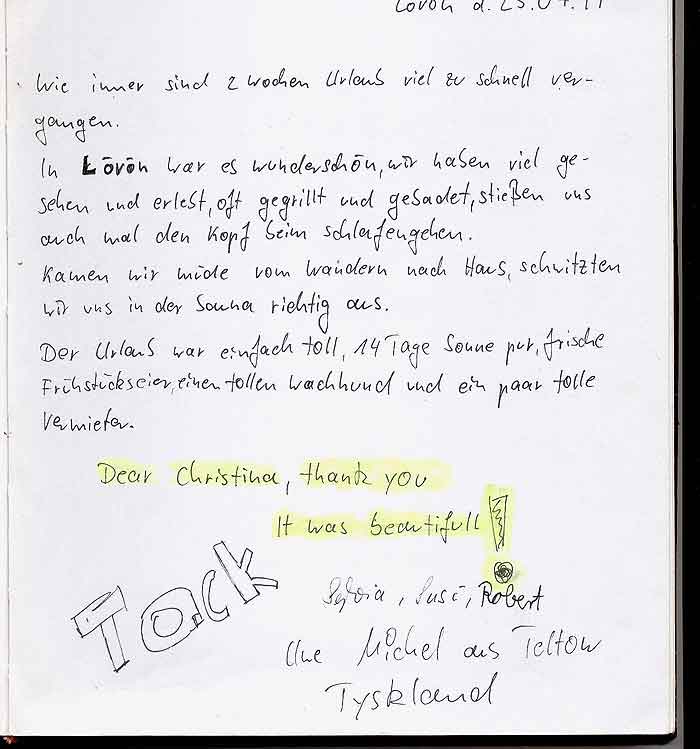 Lövön d. 25.07.
Wie immer sind 2 Wochen Urlaub viel zu schnell ver-
gangen.
In Lövön war es wunderschön, wir haben viel ge-
sehen und erlebt, oft gegrillt und gebadet, stießen uns
auch mal den Kopf beim Schlafengehen.
Kamen wir müde vom Wandern nach Haus, schwitzten
wir uns in der Sauna richtig aus.
Der Urlaub war einfach toll, 14 Tage Sonne pur, frische
Frühstückseier, einen tollen Wachhund und ein paar tolle
Vermieter.
Dear Christina, thank you
It was beautifull!
Tack
Sylvia, Susi, Robert
Uwe Michel aus Teltow
Tyskland